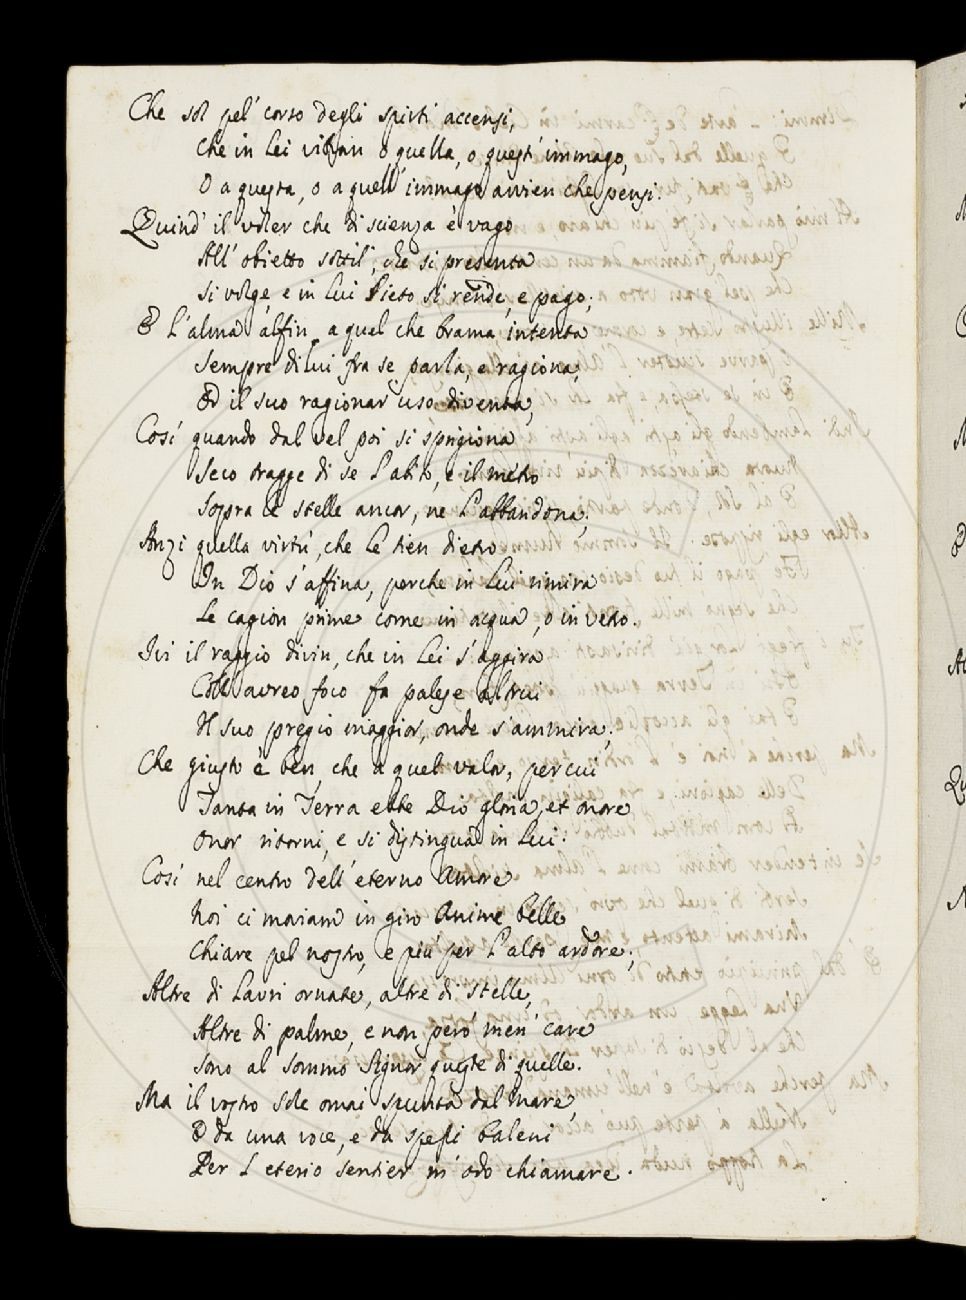 Che sol pel' corso degli spirti accensi,
Che in Lei vibran o quella, o quest' immago,
O a questa, o a quell' immago avvien che pensi.
Quind' il voler che di scienza è vago
All' obietto sottil', che si presenta
Si volge, e in Lui lieto si rende, e pago;
E L'alma alfin a quel che brama intenta
Sempre di lui fra se parla, e ragiona,
Ed il suo ragionar uso diventa,
Cosi quando dal vel poi si sprigiona
Seco tragge di se l'abito, e il metro
Sopra le stelle ancor, ne l'abbandona;
Anzi quella virtù, che Le tien dietro
In Dio s'affina, perche in Lui rimira
Le cagion prime come in acqua, o in vetro.
Ivi il raggio divin, che in Lei s'aggira
Coll' aureo foco fa palese altrui
Il suo pregio maggior, onde s'ammira;
Che giusto è ben, che a quel valor, per cui
Tanta in Terra ebbe Dio gloria, et onore
Onor ritorni, e si distingua in Lui.
Così nel centro dell' eterno Amore
Noi ci moviam in giro Anime belle
Chiare pel nostro, e più per l'alto ardore;
Altre di Lauri ornate, altre di stelle,
Altre di palme, e non però men' care
Sono al sommo Signor queste di quelle.
Ma il vostro sole omai spunta dal Mare,
E da una voce, e da spessi baleni
Per L'eterio sentier m'odo chiamare.